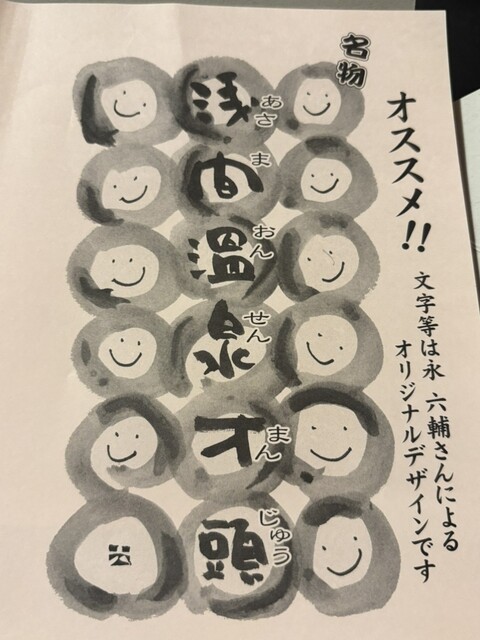 名物
オススメ!!
文字等は永 六輔さんによる
オリジナルデザインです
浅間温泉才頭
あさまおんせんまんじゅう